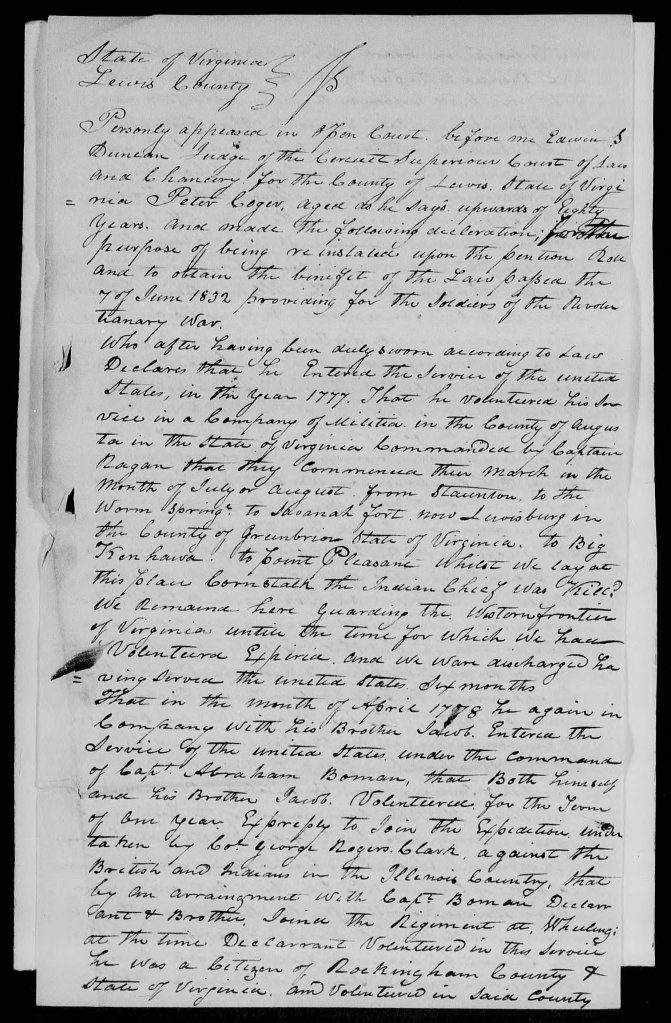 State of Virginia
Lewis County
Personly appeared in Open Court before me Edwin S
Duncan Judge of the Circuit Superiour Court of Law
and Chancery for the County of Lewis, State of Virgi
nia Peter Coger, aged as he says upwards of Eighty
years. and made the following declaration; for the
purpose of being reinstated upon the pention Roll
and to obtain the benifit of the Law passed the
7 of June 1832 providing for the Soldiers of the Revolu
tianary War.
Who after having been duly sworn according to Law
Declares that he Entered the Service of the united
States, in the year 1777. That he volunteered his Ser
vice in a Company of Militia in the County of Augus
ta in the State of Virginia Commanded by Captain
Ragan that they Commenced their March in the
Month of July or August from Staunton, to the
Worm Springs to Savanah fort now Lewisburg in
the County of Greenbrier State of Virginia. to Big
Kenhawa. to Point Pleasant Whilst We lay at
this place Cornstalk the Indian Chief Was Killd
We Remaind here guarding the Western frontier
of Virginia untill the time for which We had
Volunteerd Expired. and we Ware discharged ha
ving Served the united States Six months
That in the month of April 1778 he again in
Company With his Brother Jacob Entered the
Service of the united States under the command
of Capt. Abraham Boman, that Both himself
and his Brother Jacob. Volunteered for the Term
of one year Expressly to Join the Expedition under
taken by Col George Rogers Clark, against the
British and Indians in the Illenois Country, that
by an arraingment With Capt Boman Declarr
ant & Brother, Joined the Rigiment at, Wheeling;
at the time Declarrant Volunteered in this Service
he was a Citizen of Rockingham County &
State of Virginia. and Volunteered in Said County